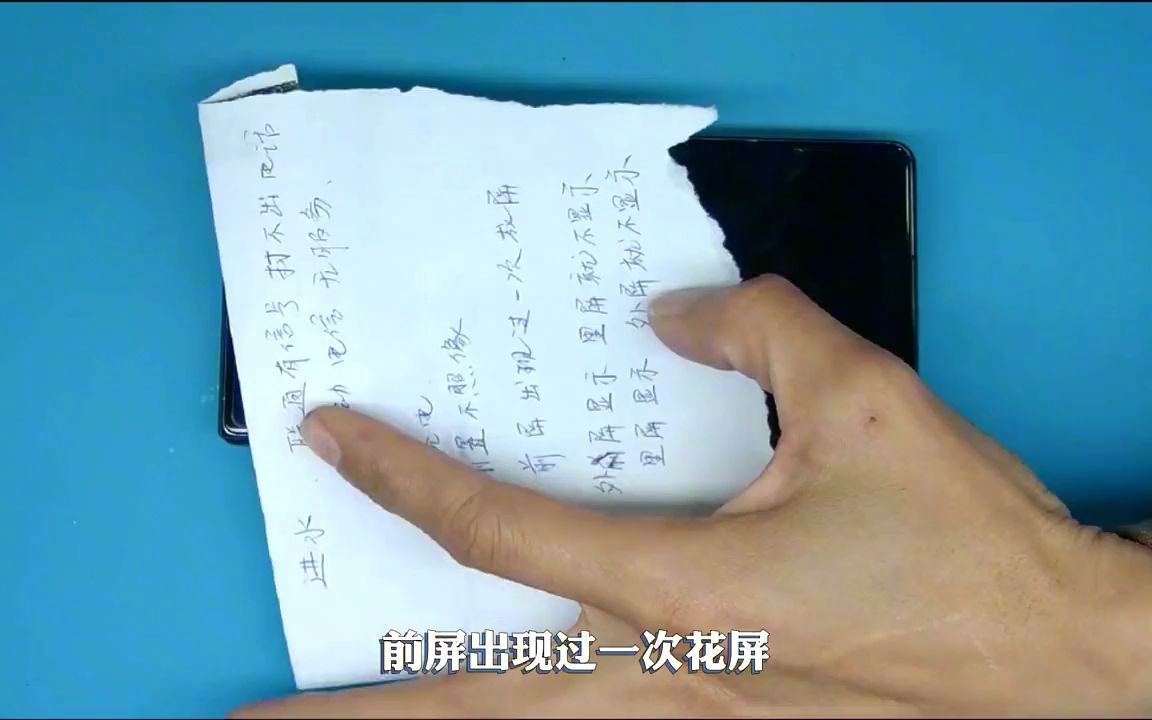 进水
联通有信号 打不出电话
动 电信 无服务、
电
置不照像
前屏出现过一次花屏
外屏显示 里屏就不显示、
里屏显示 外屏就不显示、
前屏出现过一次花屏